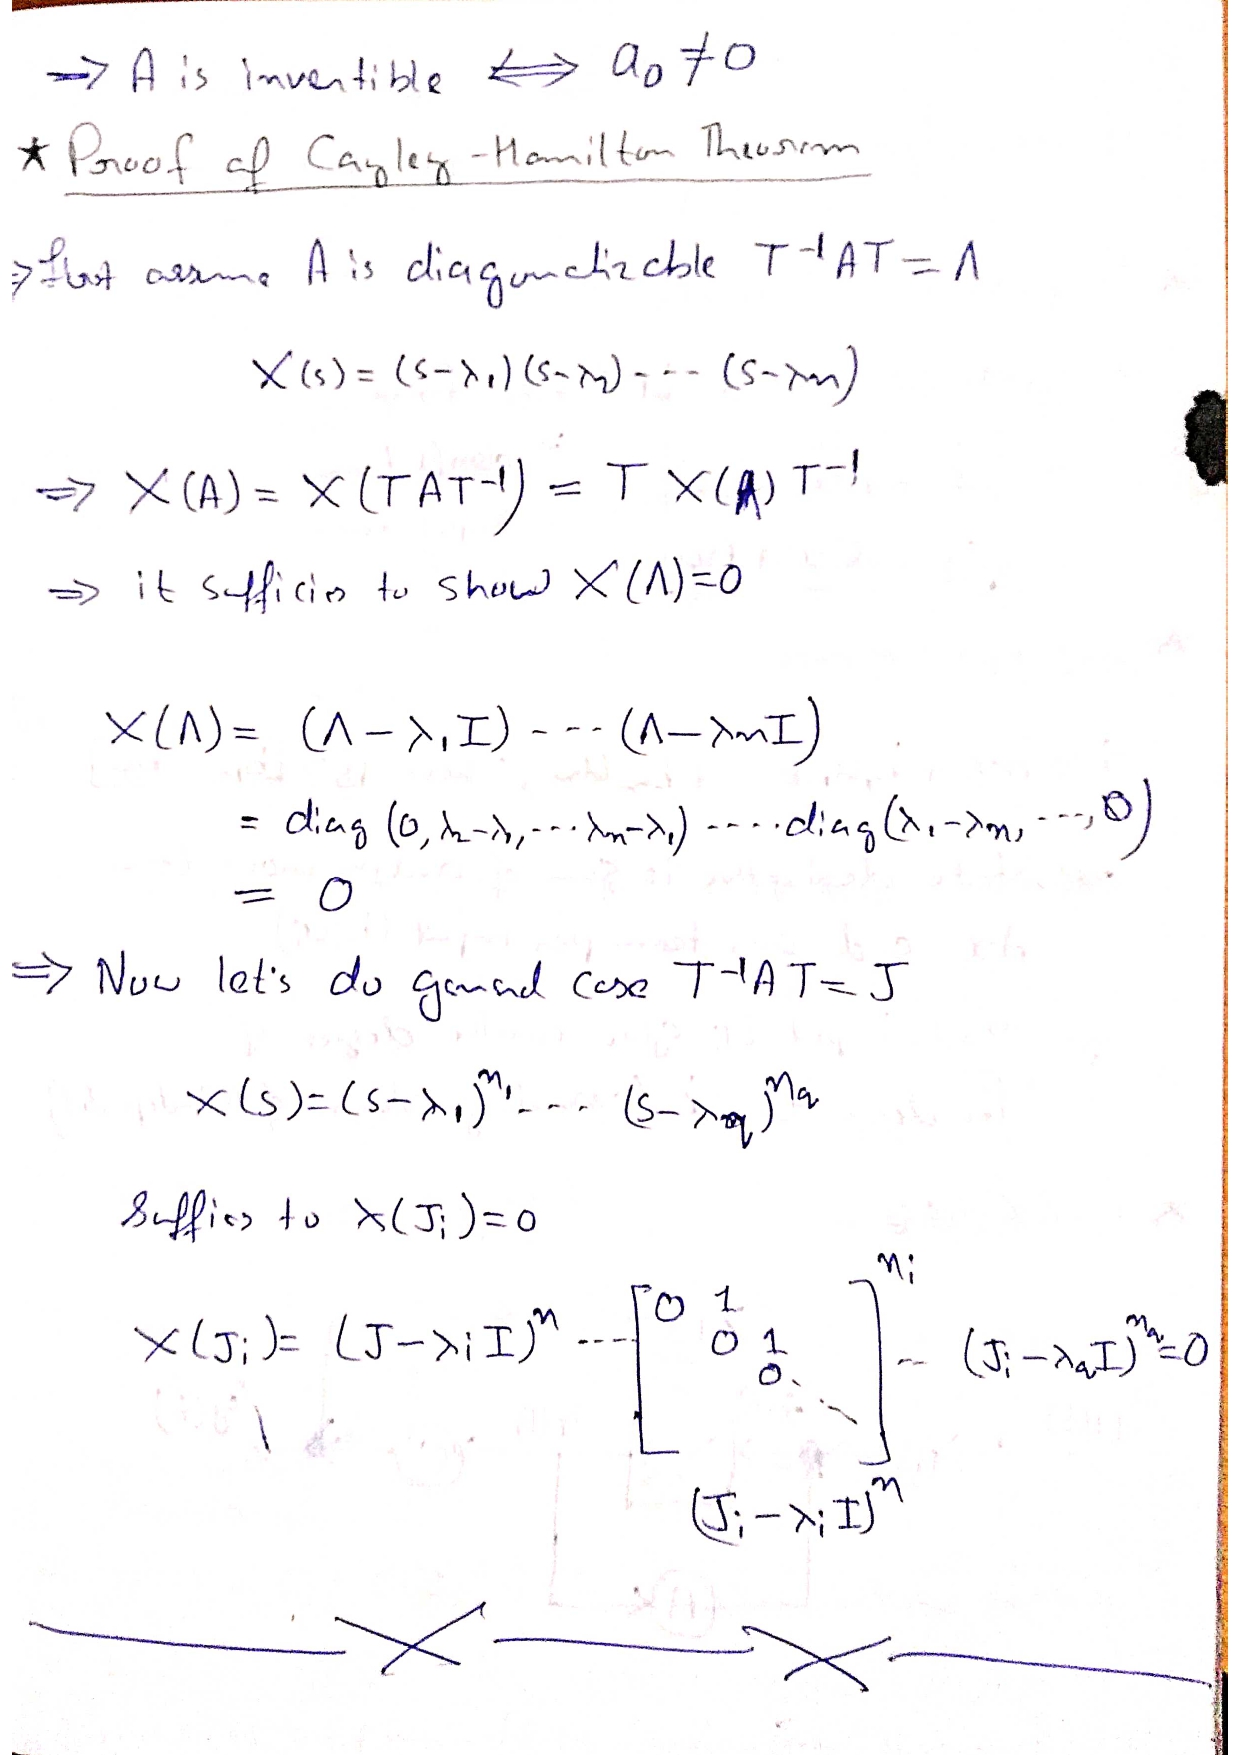 ⇒ A is invertible ⇔ a₀ ≠ 0
★ Proof of Cayley-Hamilton Theorem
⇒ first assume A is diagonalizable T⁻¹AT = Λ
X(s) = (s-λ₁)(s-λ₂) ---- (s-λn)
⇒ X(A) = X(TΛT⁻¹) = T X(Λ) T⁻¹
⇒ it suffices to show X(Λ)=0
X(Λ) = (Λ-λ₁I) ---- (Λ-λnI)
= diag (0, λ₂-λ₁, ... λn-λ₁) ---- diag (λ₁-λn, ---, 0)
= 0
⇒ Now let's do general case T⁻¹AT = J
X(s) = (s-λ₁)^n₁ ---- (s-λq)^nq
Suffices to X(Jᵢ)=0
X(Jᵢ) = (J-λᵢI)^n ---- [0 1 0 1 0 ...]^nᵢ -- (Jᵢ-λqI)^nq = 0
(Jᵢ-λᵢI)^n